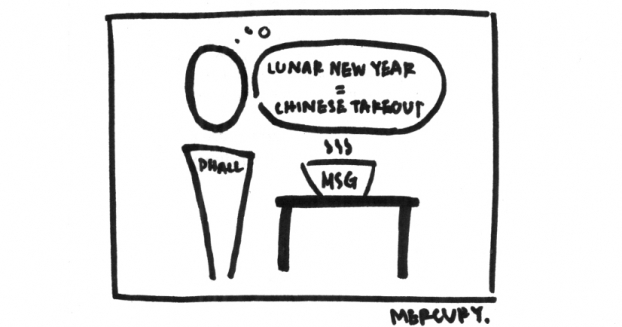 LUNAR NEW YEAR
=
CHINESE TAKEOUT
DHALL
MSG
MERCURY.